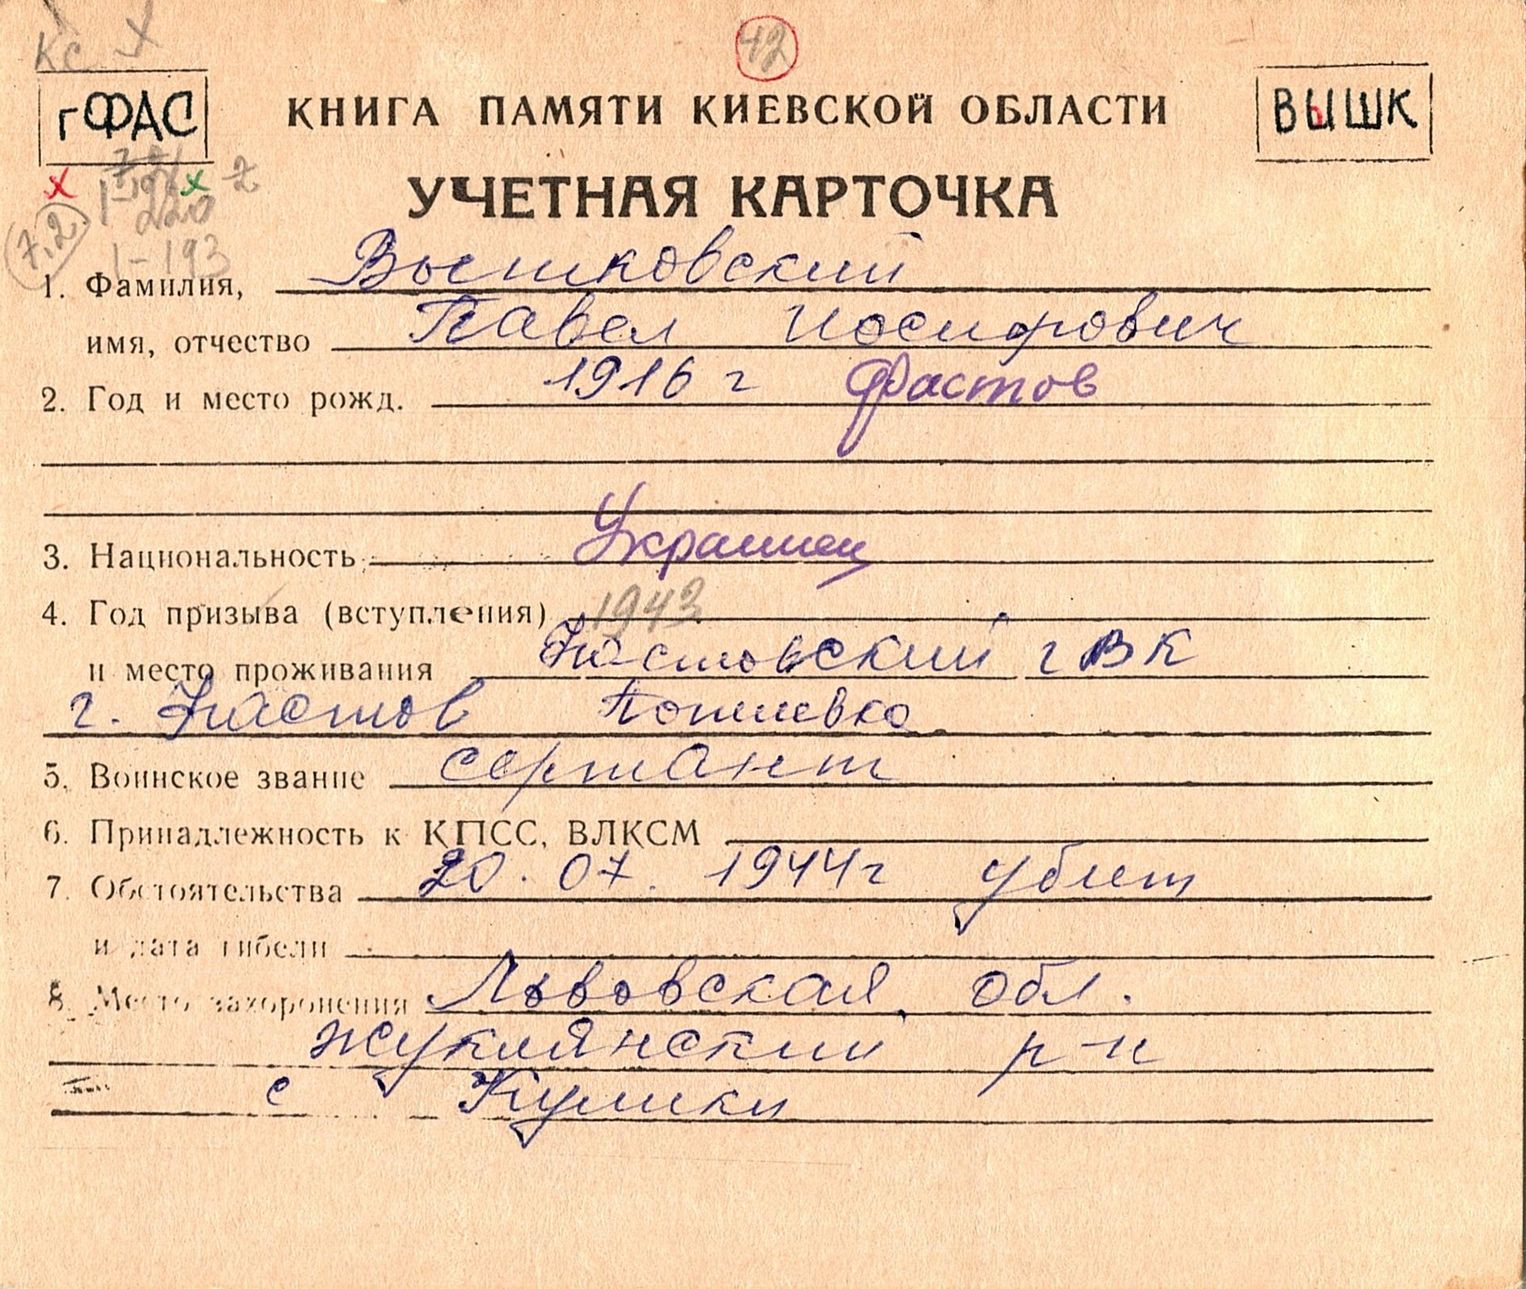 КС X
42
гФАС
КНИГА ПАМЯТИ КИЕВСКОЙ ОБЛАСТИ
ВЫШК
УЧЕТНАЯ КАРТОЧКА
х х 2
220
7.2.
1-193
1. Фамилия, Вышковский
имя, отчество Павел Иосифович
2. Год и место рожд. 1916 г Фастов
3. Национальность Украинец
4. Год призыва (вступления) 1943
и место проживания Фастовский гВК
г. Фастов
5. Воинское звание сержант
6. Принадлежность к КПСС, ВЛКСМ
7. Обстоятельства 20.07.1944г убит
и дата гибели
8. Место захоронения Львовская обл.
жуклянский р-н
с Кулики